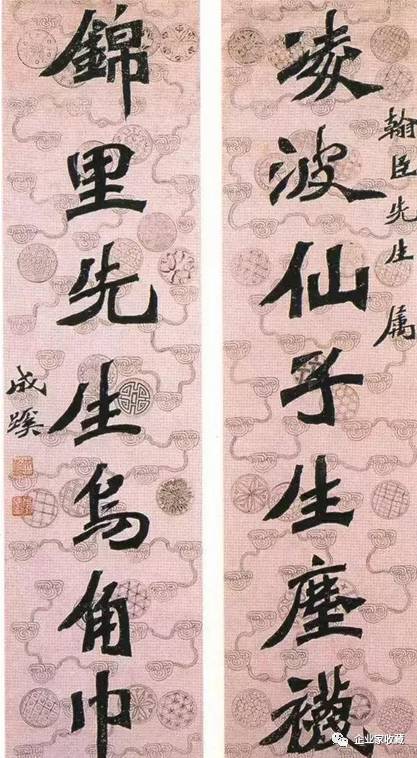 翰臣先生属
凌波仙子生塵襪
錦里先生烏角巾
成蹊
企业家收藏